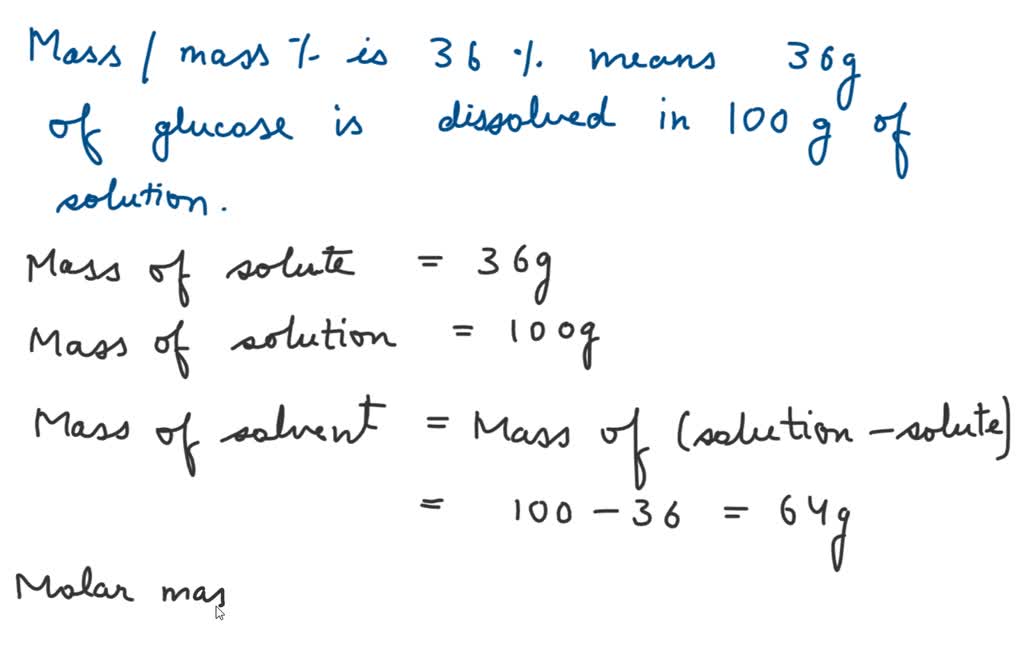 Mass / mass % is 36 % means 36g
of glucose is dissolved in 100 g of
solution.
Mass of solute = 36g
Mass of solution = 100g
Mass of solvent = Mass of (solution - solute)
= 100 - 36 = 64g
Molar mas